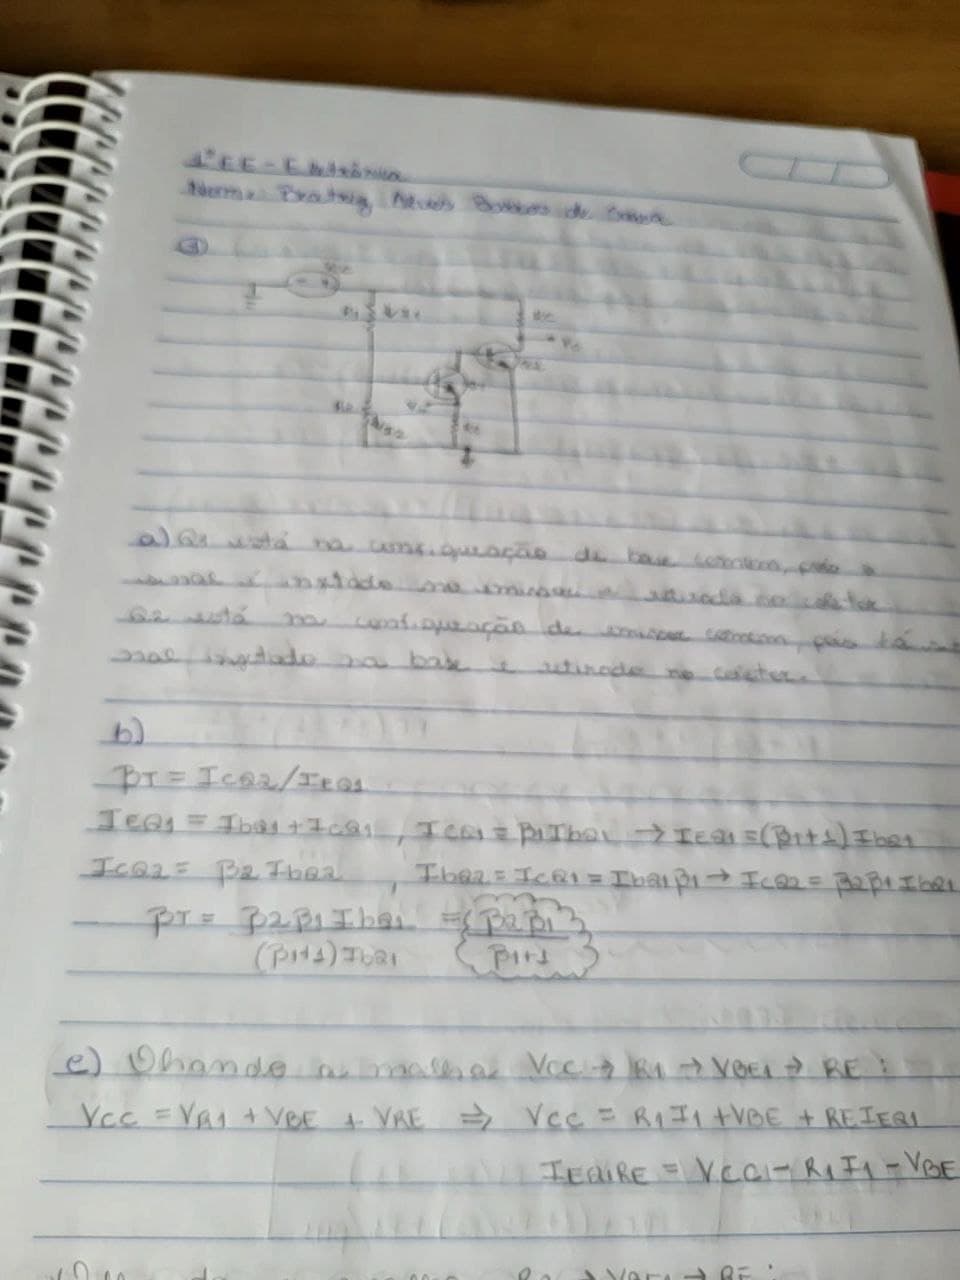 1º EE - Eletrônica
Nome: Beatriz Neves Barros de
3
VCC
R1
RC
a) Q1 está na configuração de base comum, pois o
sinal é injetado no emissor e retirado no coletor.
Q2 está na configuração de emissor comum, pois
injetado na base e retirado no coletor.
b)
βT = ICQ2/IEQ1
IEQ1 = IbQ1 + ICQ1 , ICQ1 = β1IbQ1 → IEQ1 = (β1+1)IbQ1
ICQ2 = β2 IbQ2 , IbQ2 = ICQ1 = IbQ1β1 → ICQ2 = β2β1IbQ1
βT = β2β1IbQ1 = β2β1
(β1+1)IbQ1 β1+1
c) Olhando a malha: VCC → R1 → VBE1 → RE :
VCC = VR1 + VBE + VRE ⇒ VCC = R1I1 + VBE + REIEQ1
IEQ1RE = VCC - R1I1 - VBE